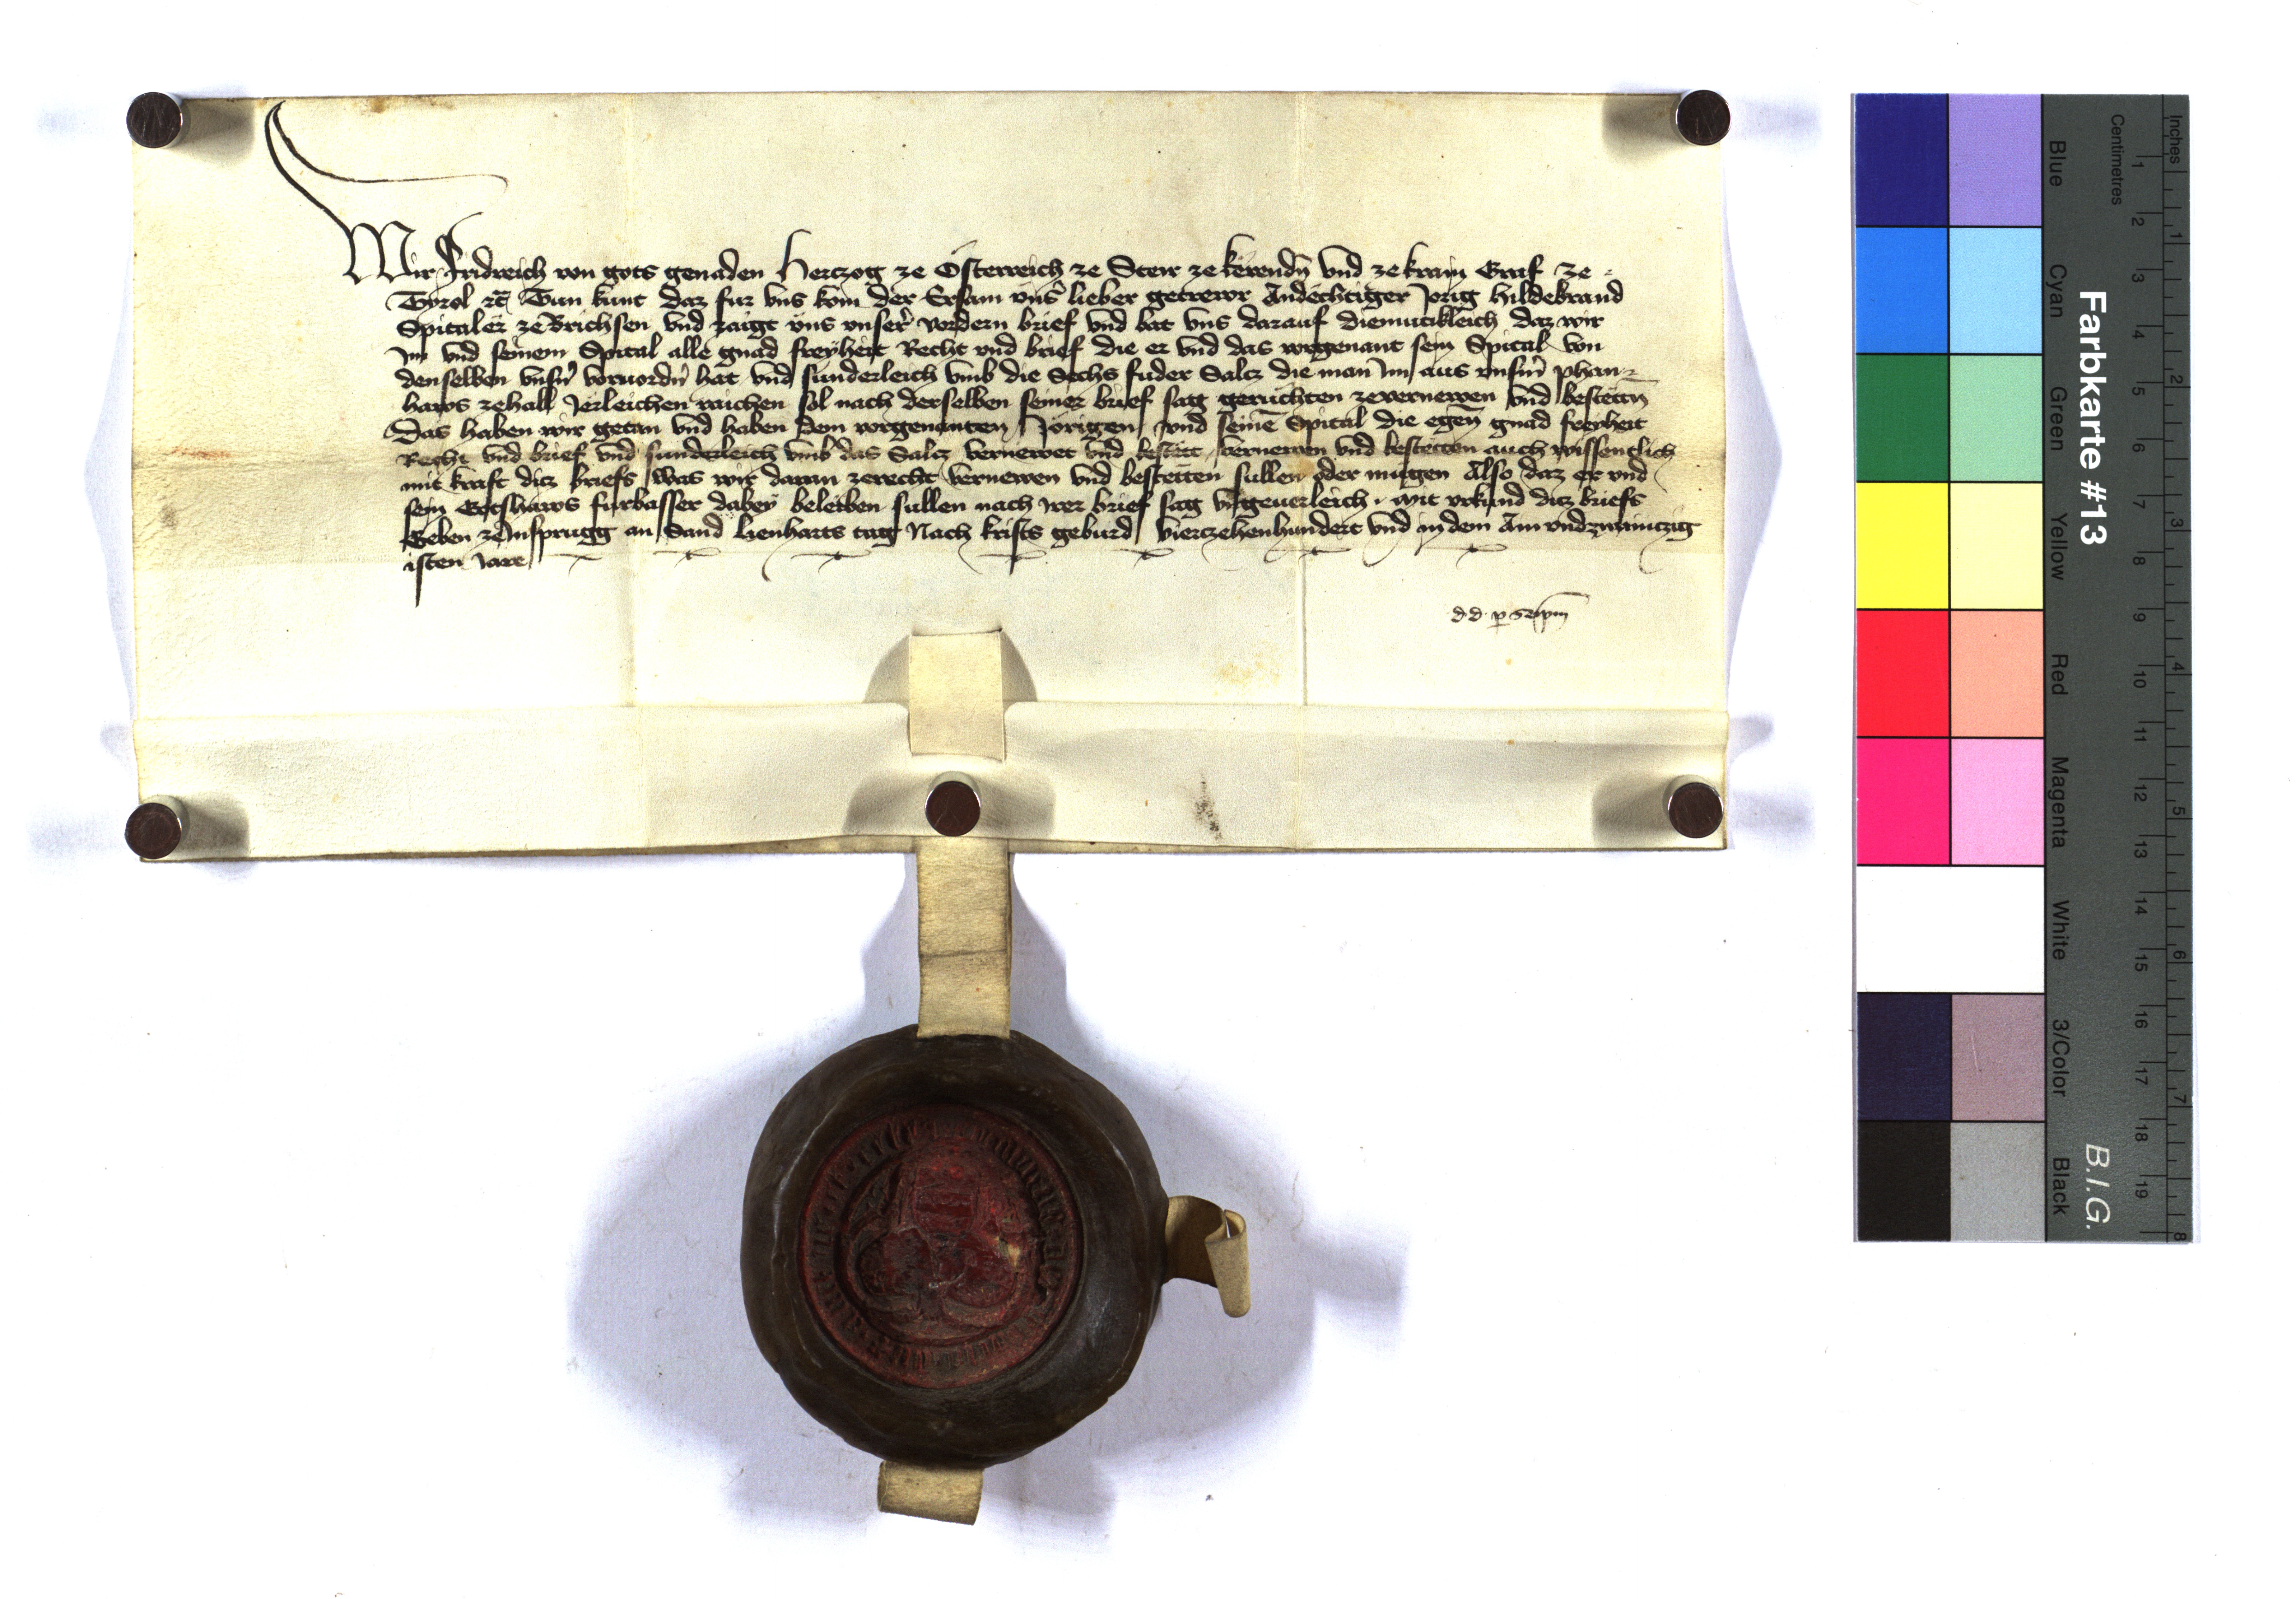 Wir Fridreich von gots genaden Herczog ze Österreich ze Steir ze kernden̄ vnd ze krain Graf ze
Tyrol ꝛc̄ Tun kunt daz fur vns kom der Ersam vns̄ lieber getrewr Andechtiger Jorig Hildebrand
Spitaler ze Brichsen vnd zaigt vns vnser̄ vordern brief vnd bat vns darauf diemutikleich daz wir
Im vnd seinem Spital alle gnad freyheit Recht vnd brief die er vnd das vorgenant sein Spital von
denselben vnsn̄ voruordn̄ hat vnd sunderleich vmb die Sechs fuder Salcz die man Im aus vnserm̄ phan-
haws zehall Jerleichen raichen sol nach derselben seiner brief sag geruchten zevernewen vnd bestetten̄
Das haben wir getan vnd haben dem vorgenanten Jorigen vnd seinē Spital die egen̄ gnad freyheit
Recht vnd brief vnd sunderleich vmb das Salcz vernewet vnd bestett vernewen vnd bestetten auch wissentlich
mit kraft dicz briefs Was wir daran zerecht vernewen vnd bestetten sullen oder mugen Also daz er vnd
sein Gotshaws furbasser dabey beleiben sullen nach irer brief sag vngeuerleich. Mit vrkund dicz briefs
Geben ze Insprugg an Sand Lienharts tag Nach krists geburd vierczehenhundert vnd in dem Ain vndzwainczig
isten Jare
d d p
Inches
Centimetres
1 2 3 4 5 6 7 8 9 10 11 12 13 14 15 16 17 18 19
1 2 3 4 5 6 7 8
Farbkarte #13
B.I.G.
Blue
Cyan
Green
Yellow
Red
Magenta
White
3/Color
Black